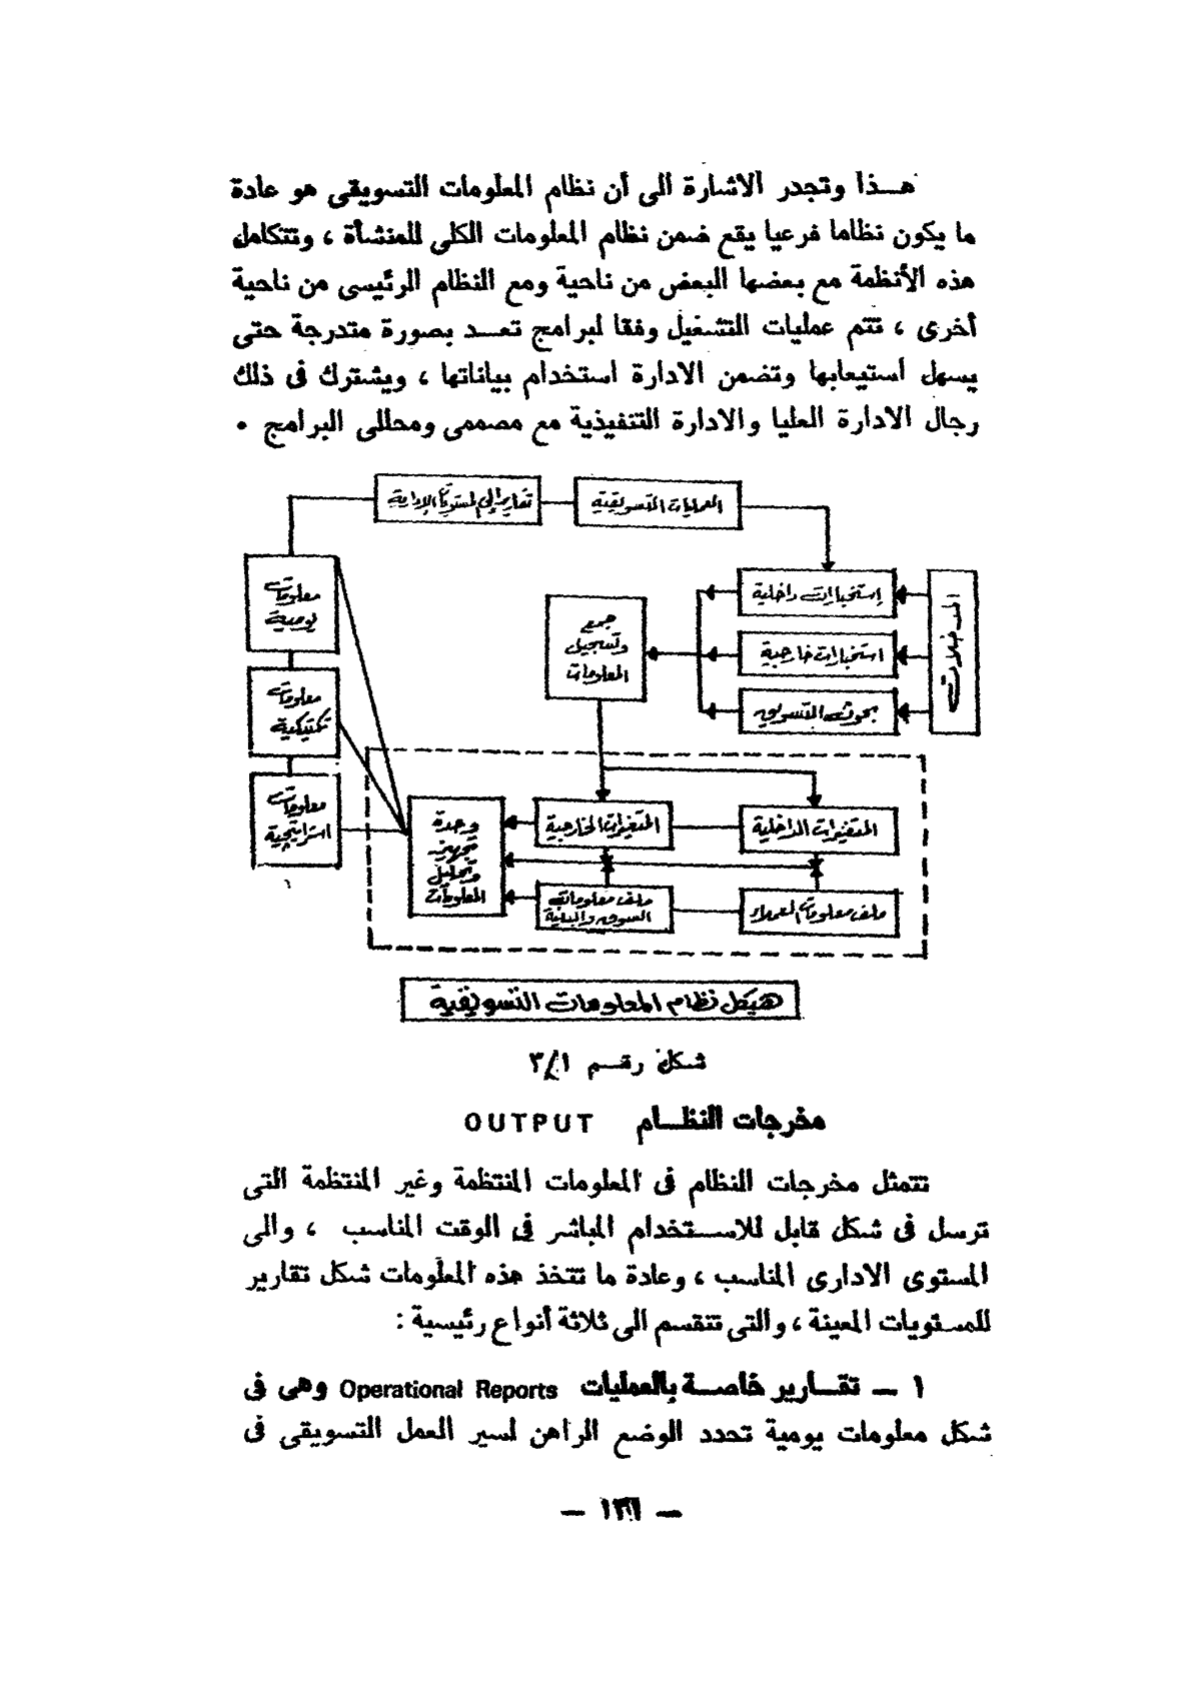 هـــذا وتجدر الاشارة الى أن نظام المعلومات التسويقى هو عادة
ما يكون نظاما فرعيا يقع ضمن نظام المعلومات الكلى للمنشأة ، وتتكامل
هذه الأنظمة مع بعضها البعض من ناحية ومع النظام الرئيسى من ناحية
أخرى ، تتم عمليات التشغيل وفقا لبرامج تعــد بصورة متدرجة حتى
يسهل استيعابها وتضمن الادارة استخدام بياناتها ، ويشترك فى ذلك
رجال الادارة العليا والادارة التنفيذية مع مصممى ومحللى البرامج .
العمليات التسويقية
تقارير إلى المستويات الإدارية
المدخلات
إستخبارات داخلية
استخبارات خارجية
بحوث التسويق
جمع
وتسجيل
المعلومات
معلومات
يومية
معلومات
تكتيكية
معلومات
استراتيجية
المتغيرات الداخلية
المتغيرات الخارجية
وحدة
تجهيز
وتحليل
المعلومات
ملف معلومات العملاء
ملف معلومات
السوق والبيئة
هيكل نظام المعلومات التسويقية
شكل رقــم ٣/١
مخرجات النظـــام OUTPUT
تتمثل مخرجات النظام فى المعلومات المنتظمة وغير المنتظمة التى
ترسل فى شكل قابل للاســتخدام المباشر فى الوقت المناسب ، والى
المستوى الادارى المناسب ، وعادة ما تتخذ هذه المعلومات شكل تقارير
للمستويات المعينة ، والتى تنقسم الى ثلاثة أنواع رئيسية :
١ ــ تقــارير خاصــة بالعمليات Operational Reports وهى فى
شكل معلومات يومية تحدد الوضع الراهن لسير العمل التسويقى فى